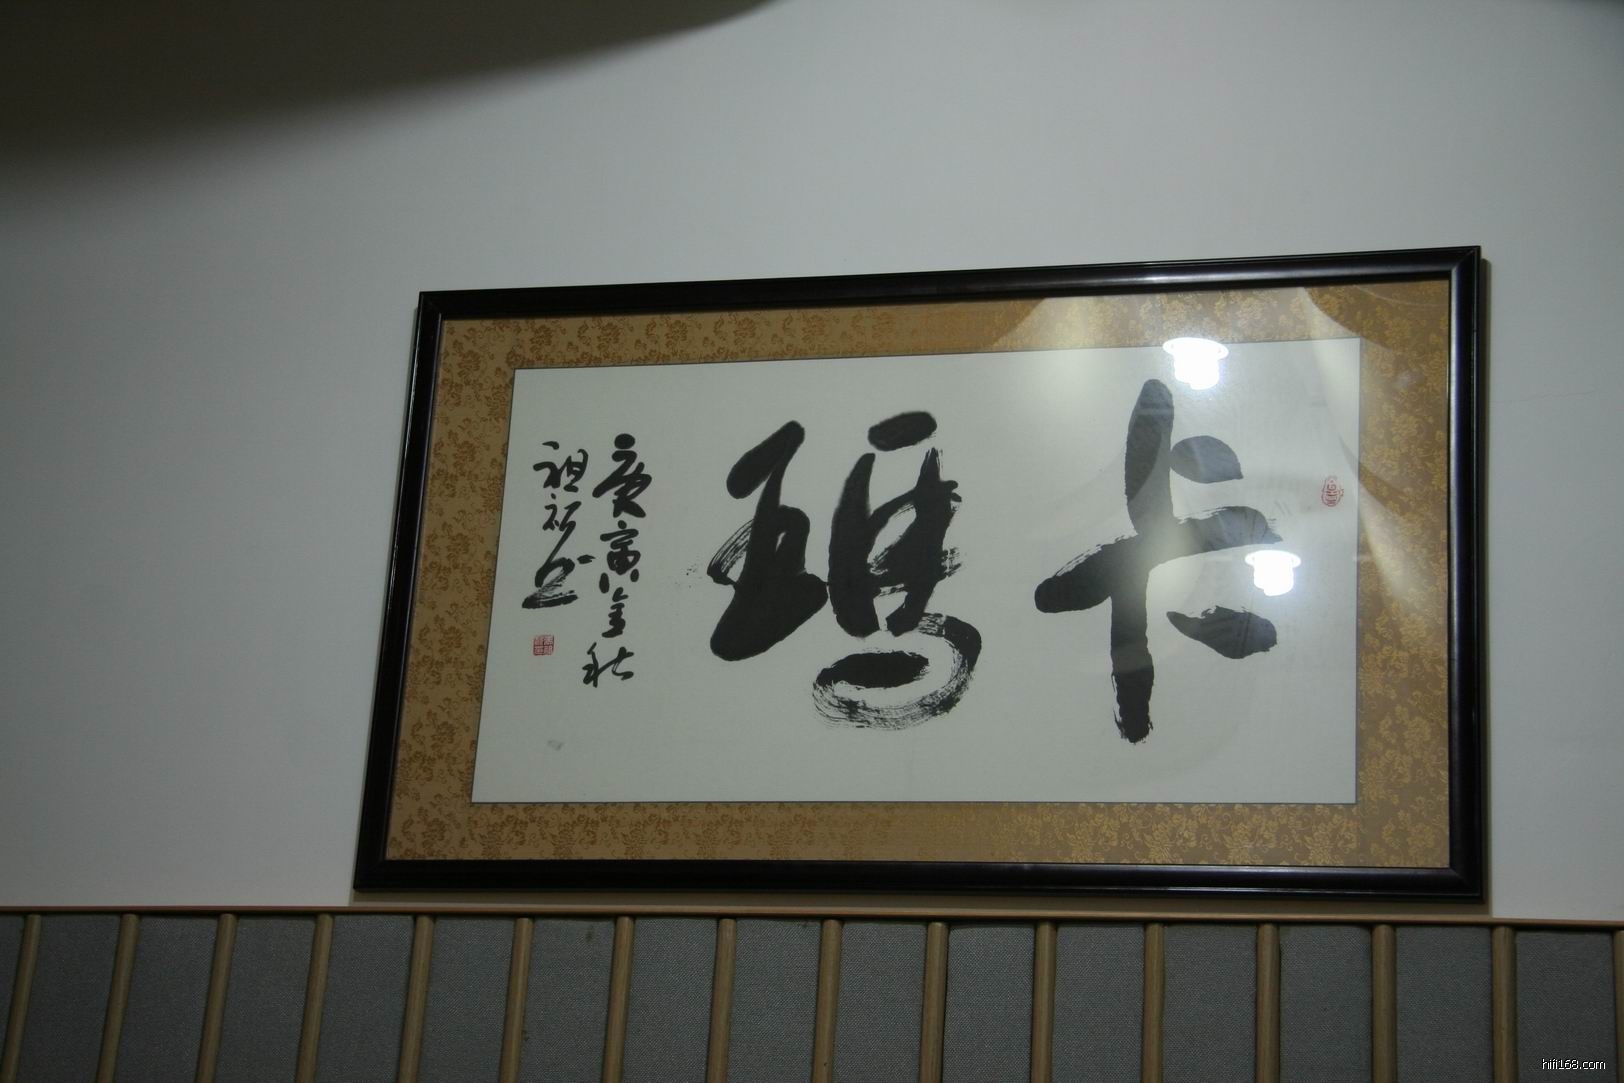 卡瑪
庚寅金秋
祖裕书
hifi168.com